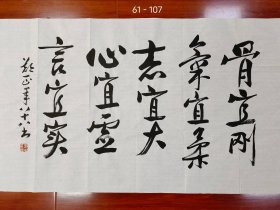 61-107
骨宜刚
氣宜柔
志宜大
心宜虚
言宜实